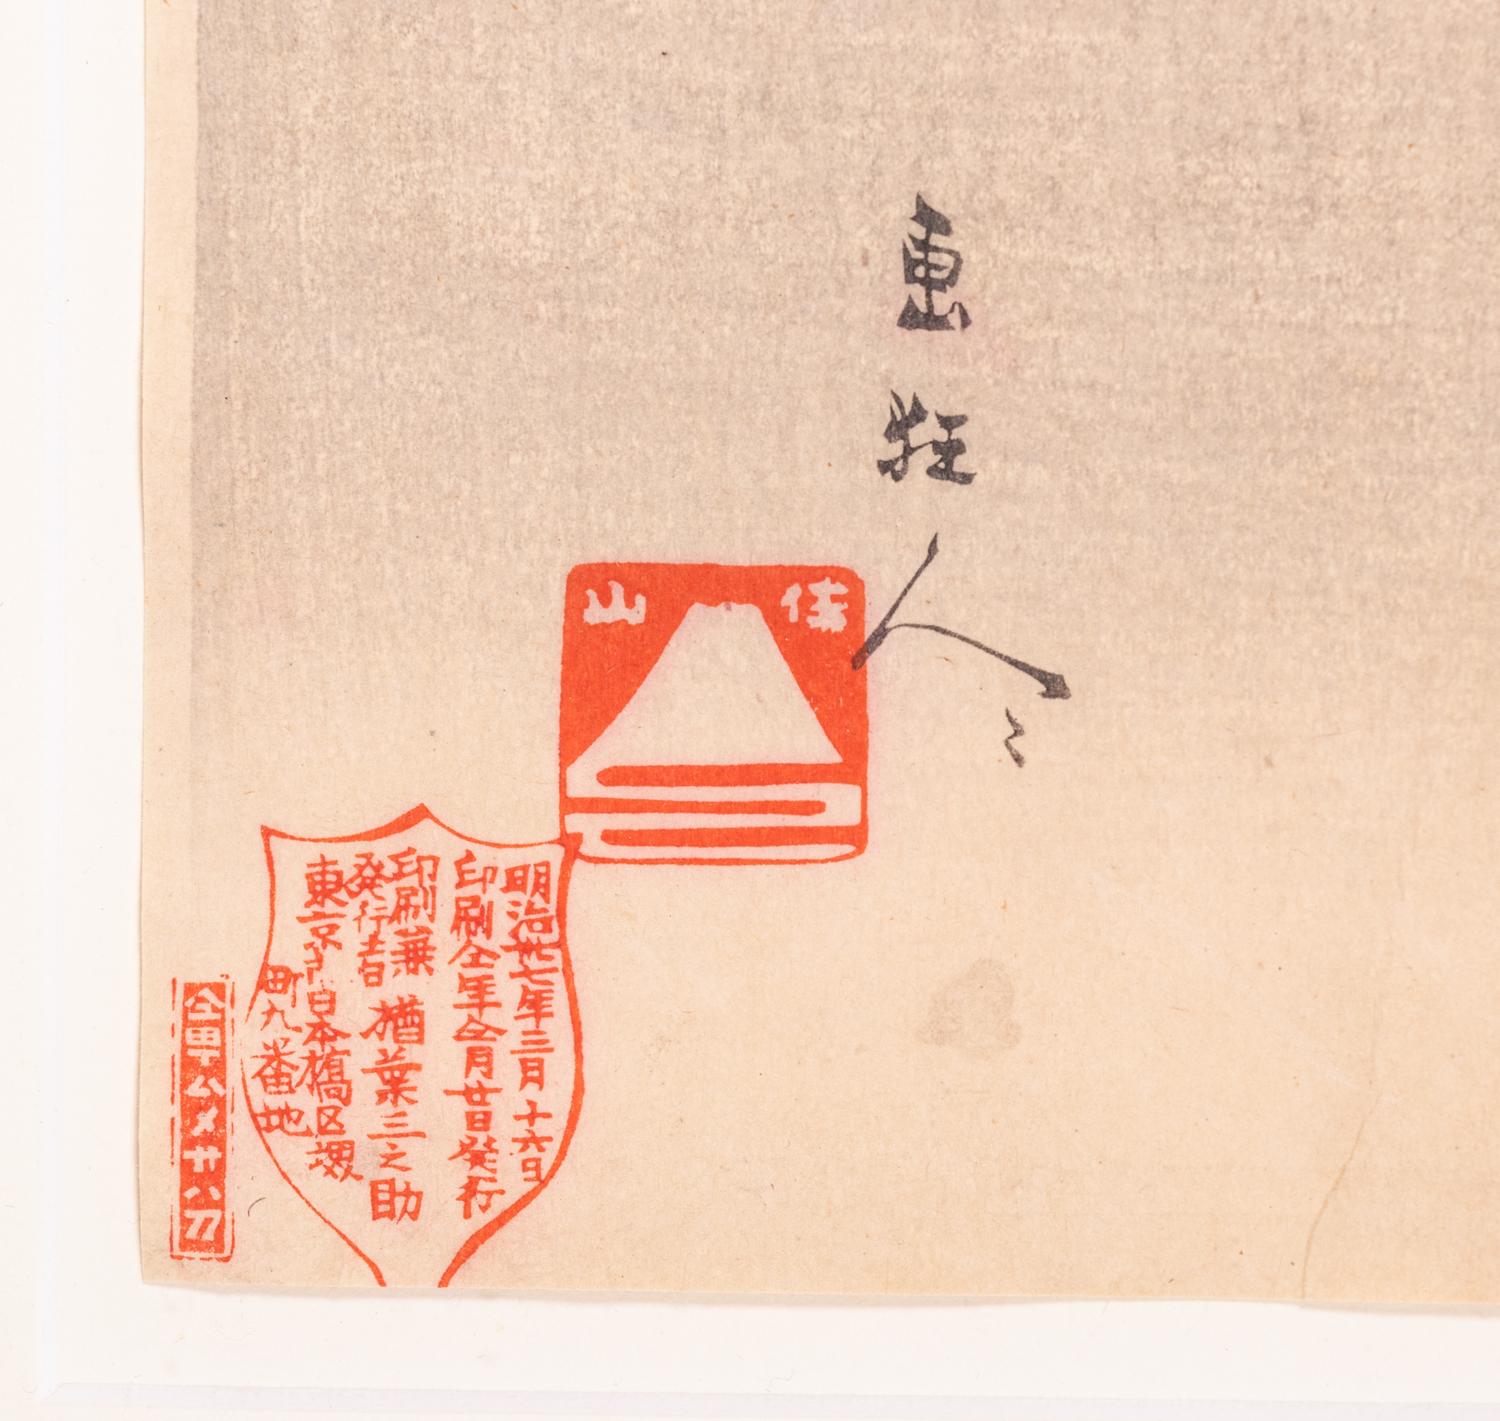 惠狂人
佳山
明治卅七年三月十六日
印刷仝年仝月廿日発行
印刷兼
発行者 楢葉三之助
東京市日本橋区堺
町九番地